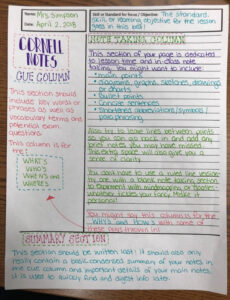 Name Mrs. Simpson
Date April 2, 2018
Skill or Standard for Focus / Objective The standard,
skill, or learning objective for the lesson
goes in this box!
CORNELL
NOTES
CUE COLUMN
This section should
includes key words or
phrases as well as
vocabulary terms and
potential exam
questions.
This column is for
the:
WHAT'S
WHO'S
WHEN'S and
WHERE'S
NOTE TAKING COLUMN
This section of your page is dedicated
to lesson time and in-class note
taking. You might want to include:
main points
diagrams, graphs, sketches, drawings,
or charts
Bullet points
Concise sentences
Shortened abbreviations/symbols/
paraphrasing
Also try to leave lines between points
so you can go back in and add any
notes you may have missed.
This extra space will also give you a
sense of clarity.
You don't have to use a lined line section.
whatever tickles your fancy. Make it
personal!
You might say this column is for the
WHY'S and HOW'S with some of
these guys thrown in!
SUMMARY SECTION
This section should be written last! It should also only
really contain a basic condensed summary of your notes in
the cue column and important details of your main notes.
It is used to quickly find and digest info later.